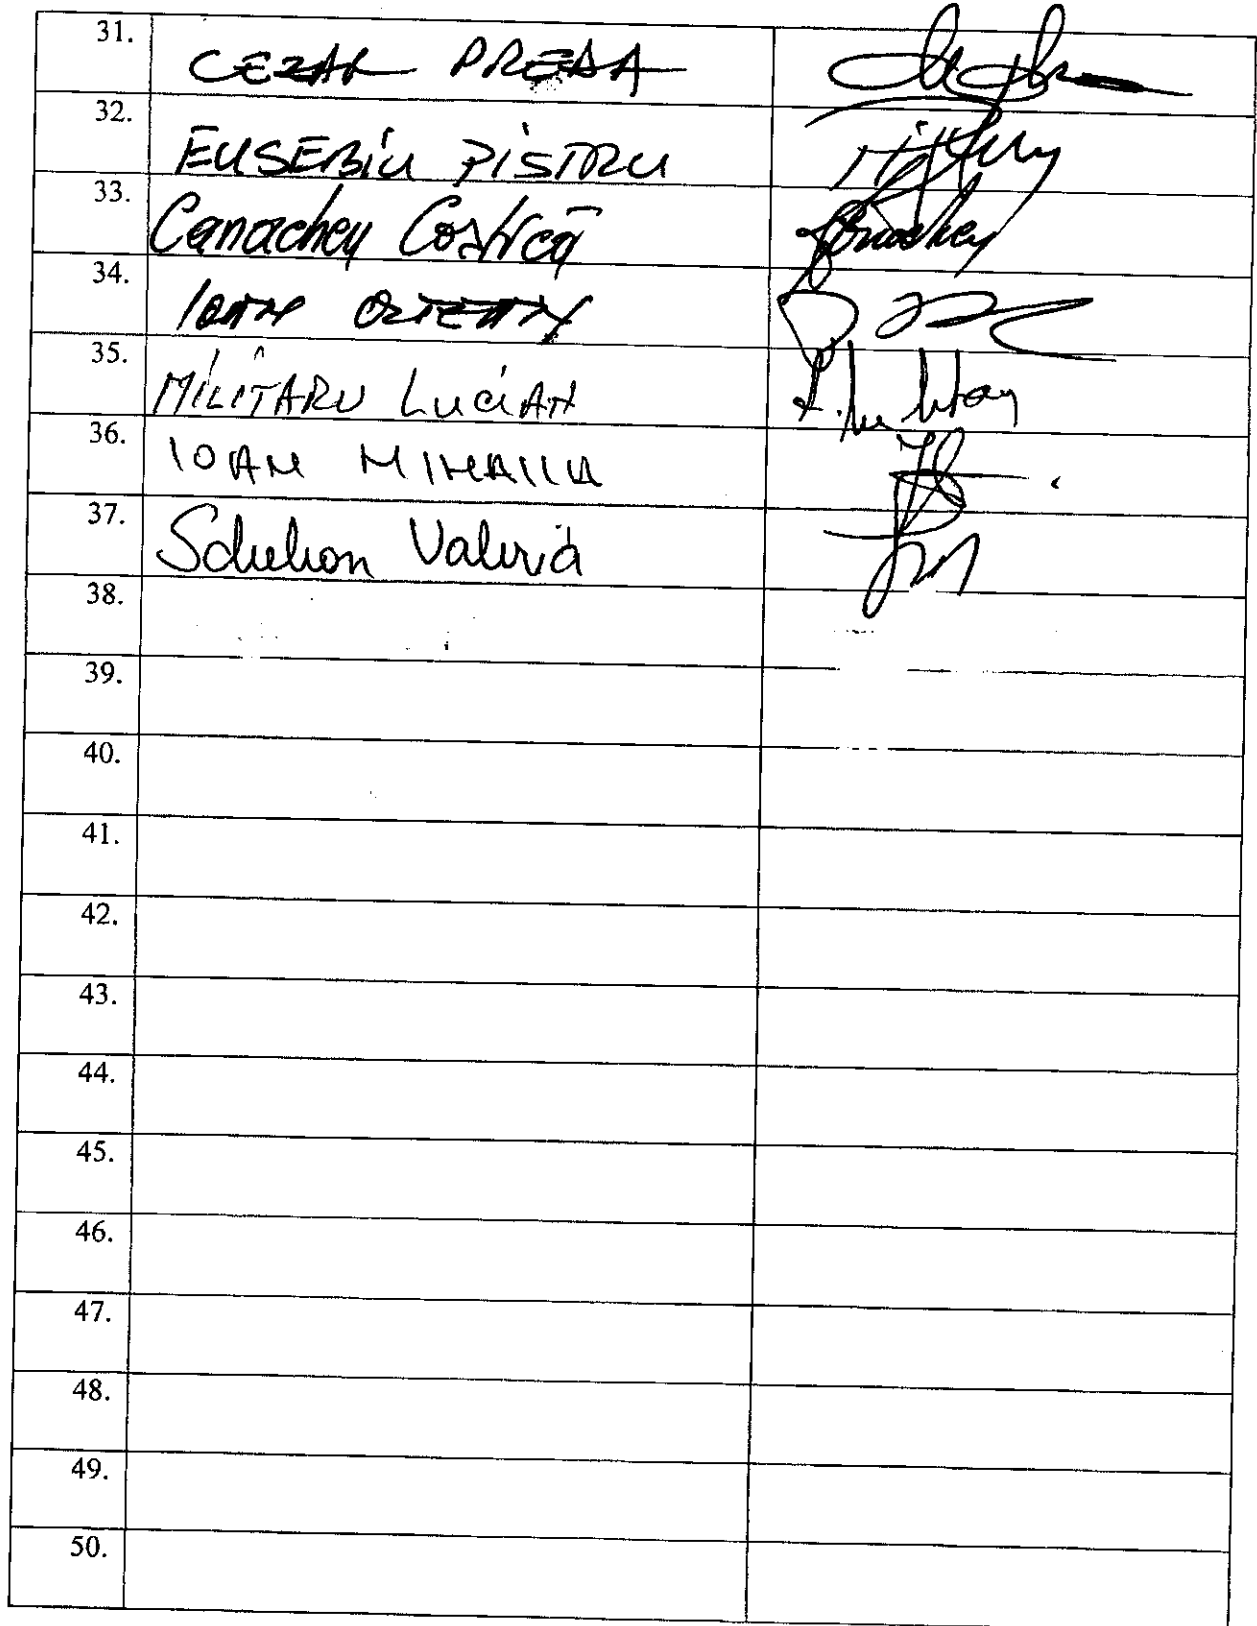 31. CEZAR PREDA
32. EUSEBIU PISTRU
33. Canacheu Costică
34. IOAN OLTEAN
35. MILITARU LUCIAN
36. IOAN MIHAILA
37. Schelean Valeria
38.
39.
40.
41.
42.
43.
44.
45.
46.
47.
48.
49.
50.